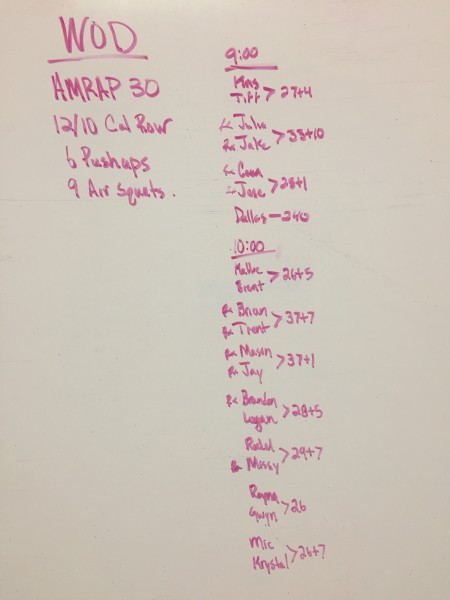 WOD
AMRAP 30
12/10 Cal Row
6 Pushups
9 Air Squats.
9:00
Tiff > 27+4
Rx Julia
Rx Jake > 33+10
Jose > 28+1
Dallas — 240
10:00
Brent > 26+5
Rx Brian
Rx Trent > 37+7
Rx Mason
Rx Jay > 37+1
Rx Brandon
Logan > 28+5
Rachel
Rx Missy > 29+7
Gwyn > 26
Mic
Krystal > 26+7